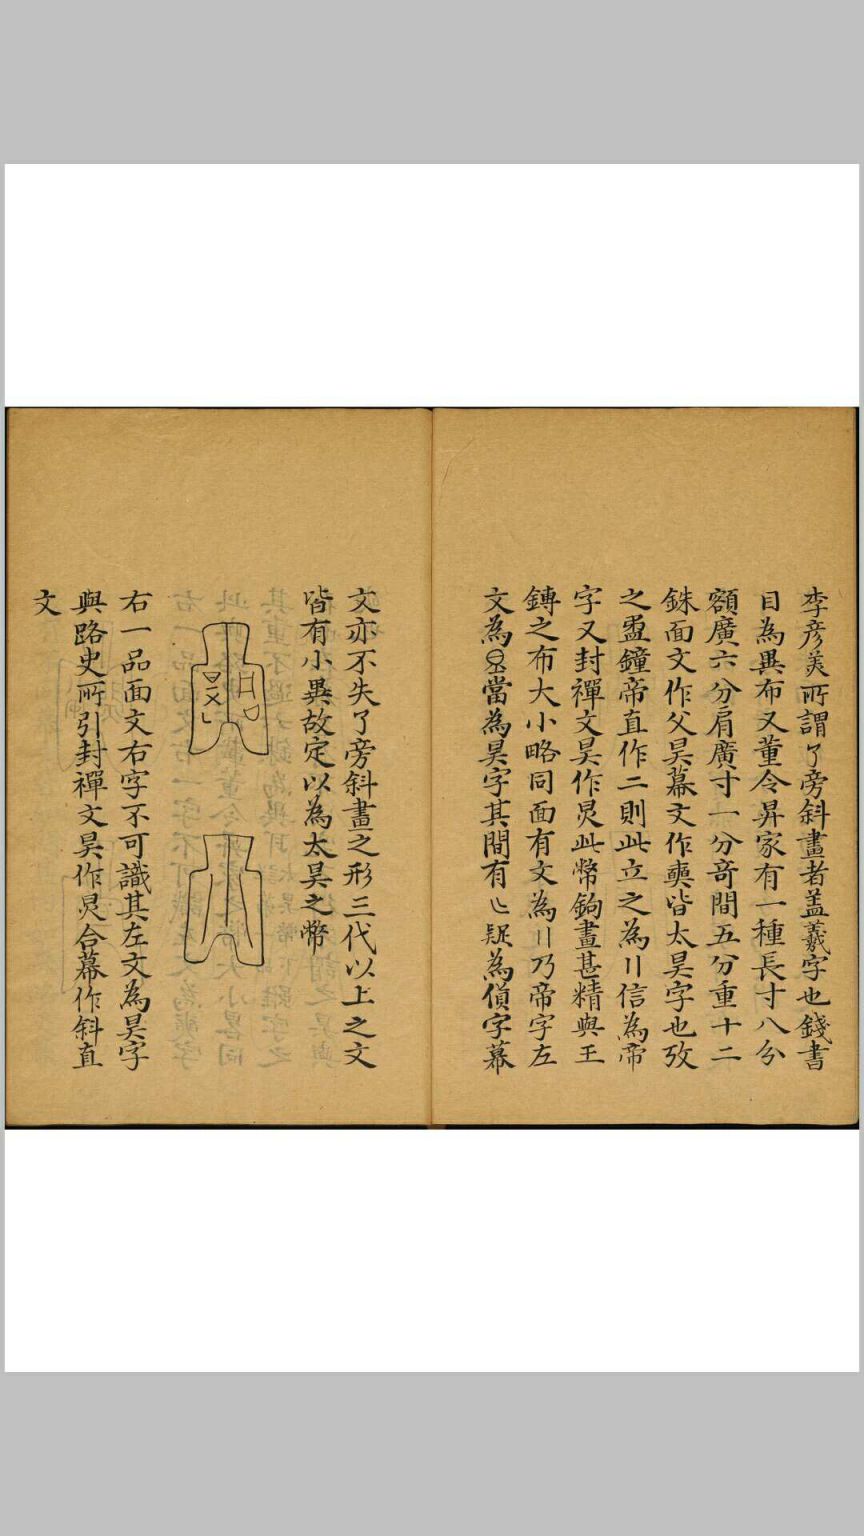 李彥美所謂了旁斜畫者蓋羲字也錢書
目為異布又董令昇家有一種長寸八分
額廣六分肩廣寸一分竒間五分重十二
銖面文作父昊幕文作奭皆太昊字也攷
之盄鐘帝直作二則此立之為〢信為帝
字又封禪文昊作炅此幣鉤畫甚精與王
鏄之布大小略同面有文為〢乃帝字左
文為當為昊字其間有疑為偩字幕
文亦不失了旁斜畫之形三代以上之文
皆有小異故定以為太昊之幣
右一品面文右字不可識其左文為昊字
與路史所引封禪文昊作炅合幕作斜直
文